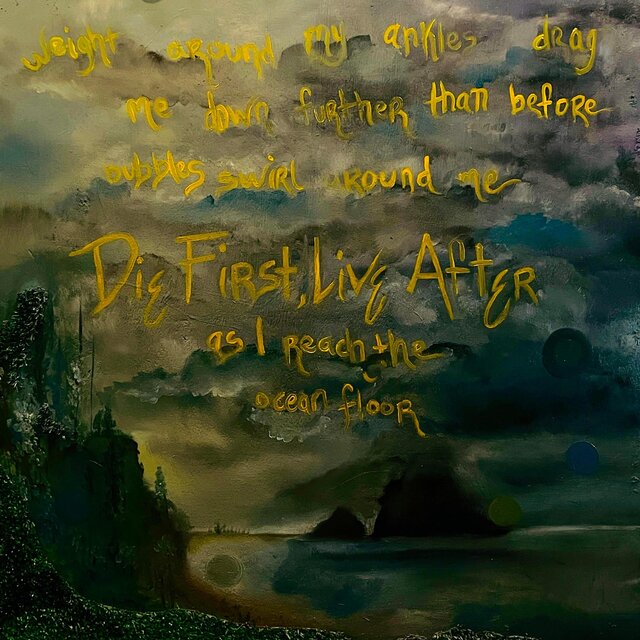 weight around my ankles drag
me down further than before
bubbles swirl around me
Die First, Live After
as I reach the
ocean floor